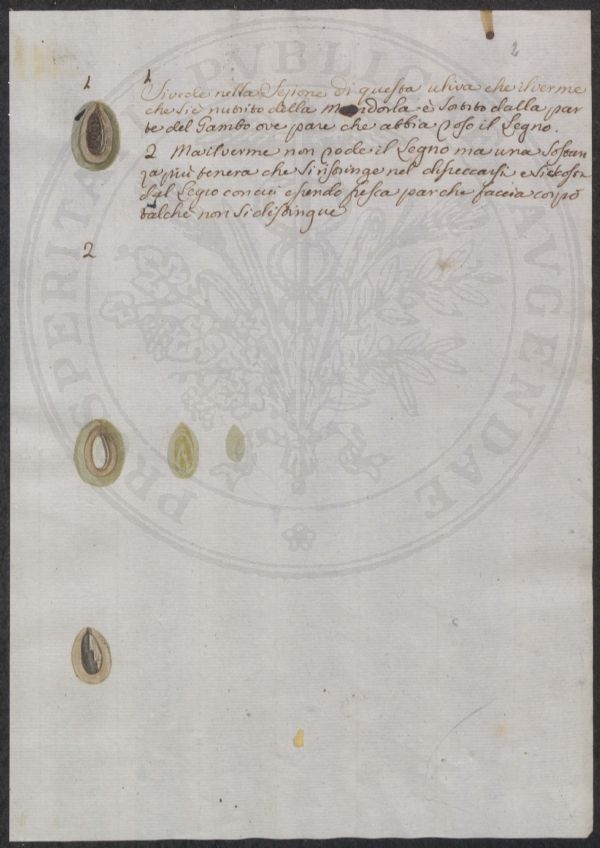 2
1
1
Si vede nella Sezione di questa uliva che il verme
che si è nutrito della Mandorla è sortito dalla par
te del Gambo ove pare che abbia roso il Legno.
2 Ma il verme non rode il Legno ma una Sostan
za più tenera che si ristringe nel diseccarsi e
del Legno con cui esendo fresca par che faccia corpo
talche non si distingue
2
PROSPERITATI PVBLICAE AVGENDAE